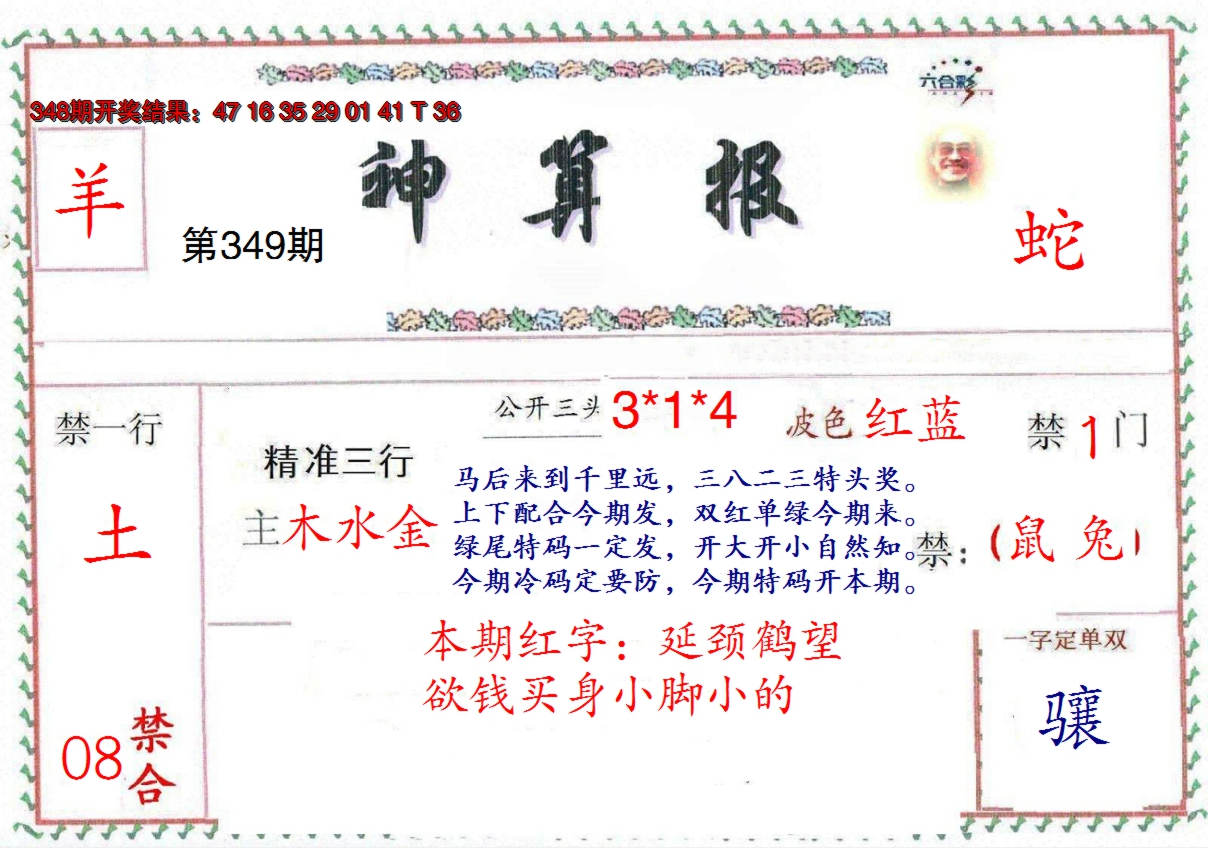 六合彩
348期开奖结果：47 16 35 29 01 41 T 36
神算报
羊
第349期
蛇
公开三头 3*1*4
波色 红蓝
禁一行
禁1门
精准三行
主木水金
土
马后来到千里远，三八二三特头奖。
上下配合今期发，双红单绿今期来。
绿尾特码一定发，开大开小自然知。
今期冷码定要防，今期特码开本期。
禁：（鼠 兔）
本期红字：延颈鹤望
欲钱买身小脚小的
一字定单双
骧
08禁合